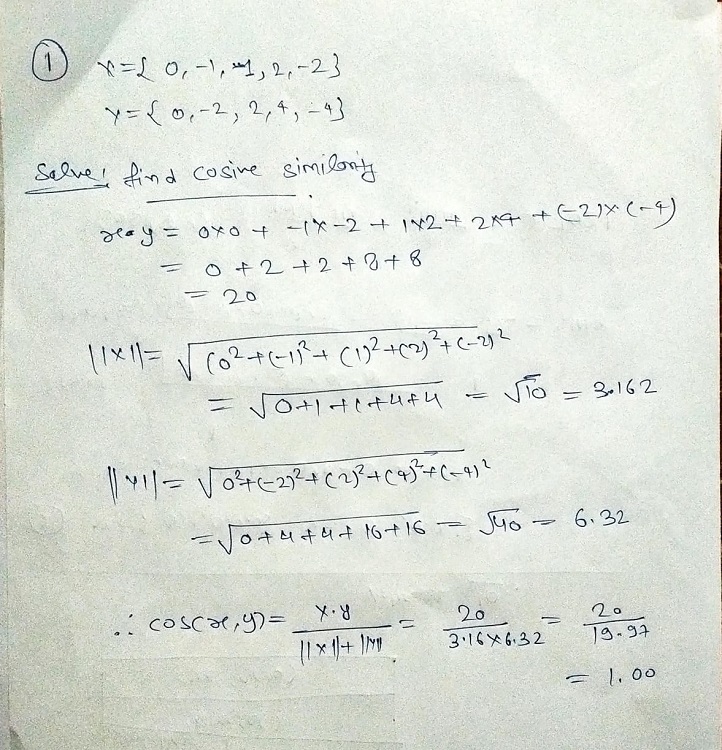 ① x={ 0,-1, 1, 2,-2}
y={ 0,-2, 2,4, -4}
Solve: find cosine similarity
x•y = 0x0 + -1x-2 + 1x2+ 2x4 + (-2)x(-4)
= 0 +2 +2 +8+8
= 20
||x||= √(0²+(-1)²+ (1)²+(2)²+(-2)²
= √0+1+1+4+4 = √10 = 3.162
||y||= √0²+(-2)²+(2)²+(4)²+(-4)²
=√0+4+4+16+16 = √40 = 6.32
∴ cos(x,y)= x.y / ||x||+||y|| = 20 / 3.16x6.32 = 20 / 19.97
= 1.00